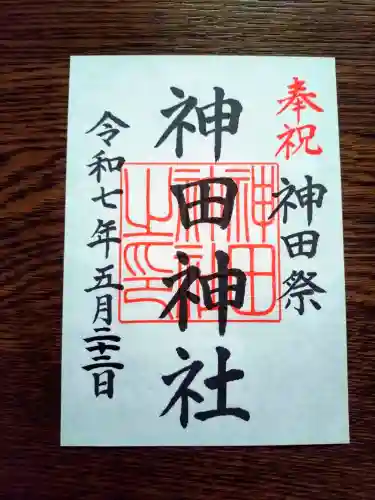 奉祝
神田祭
神田神社
神田神社之印
令和七年五月二十二日